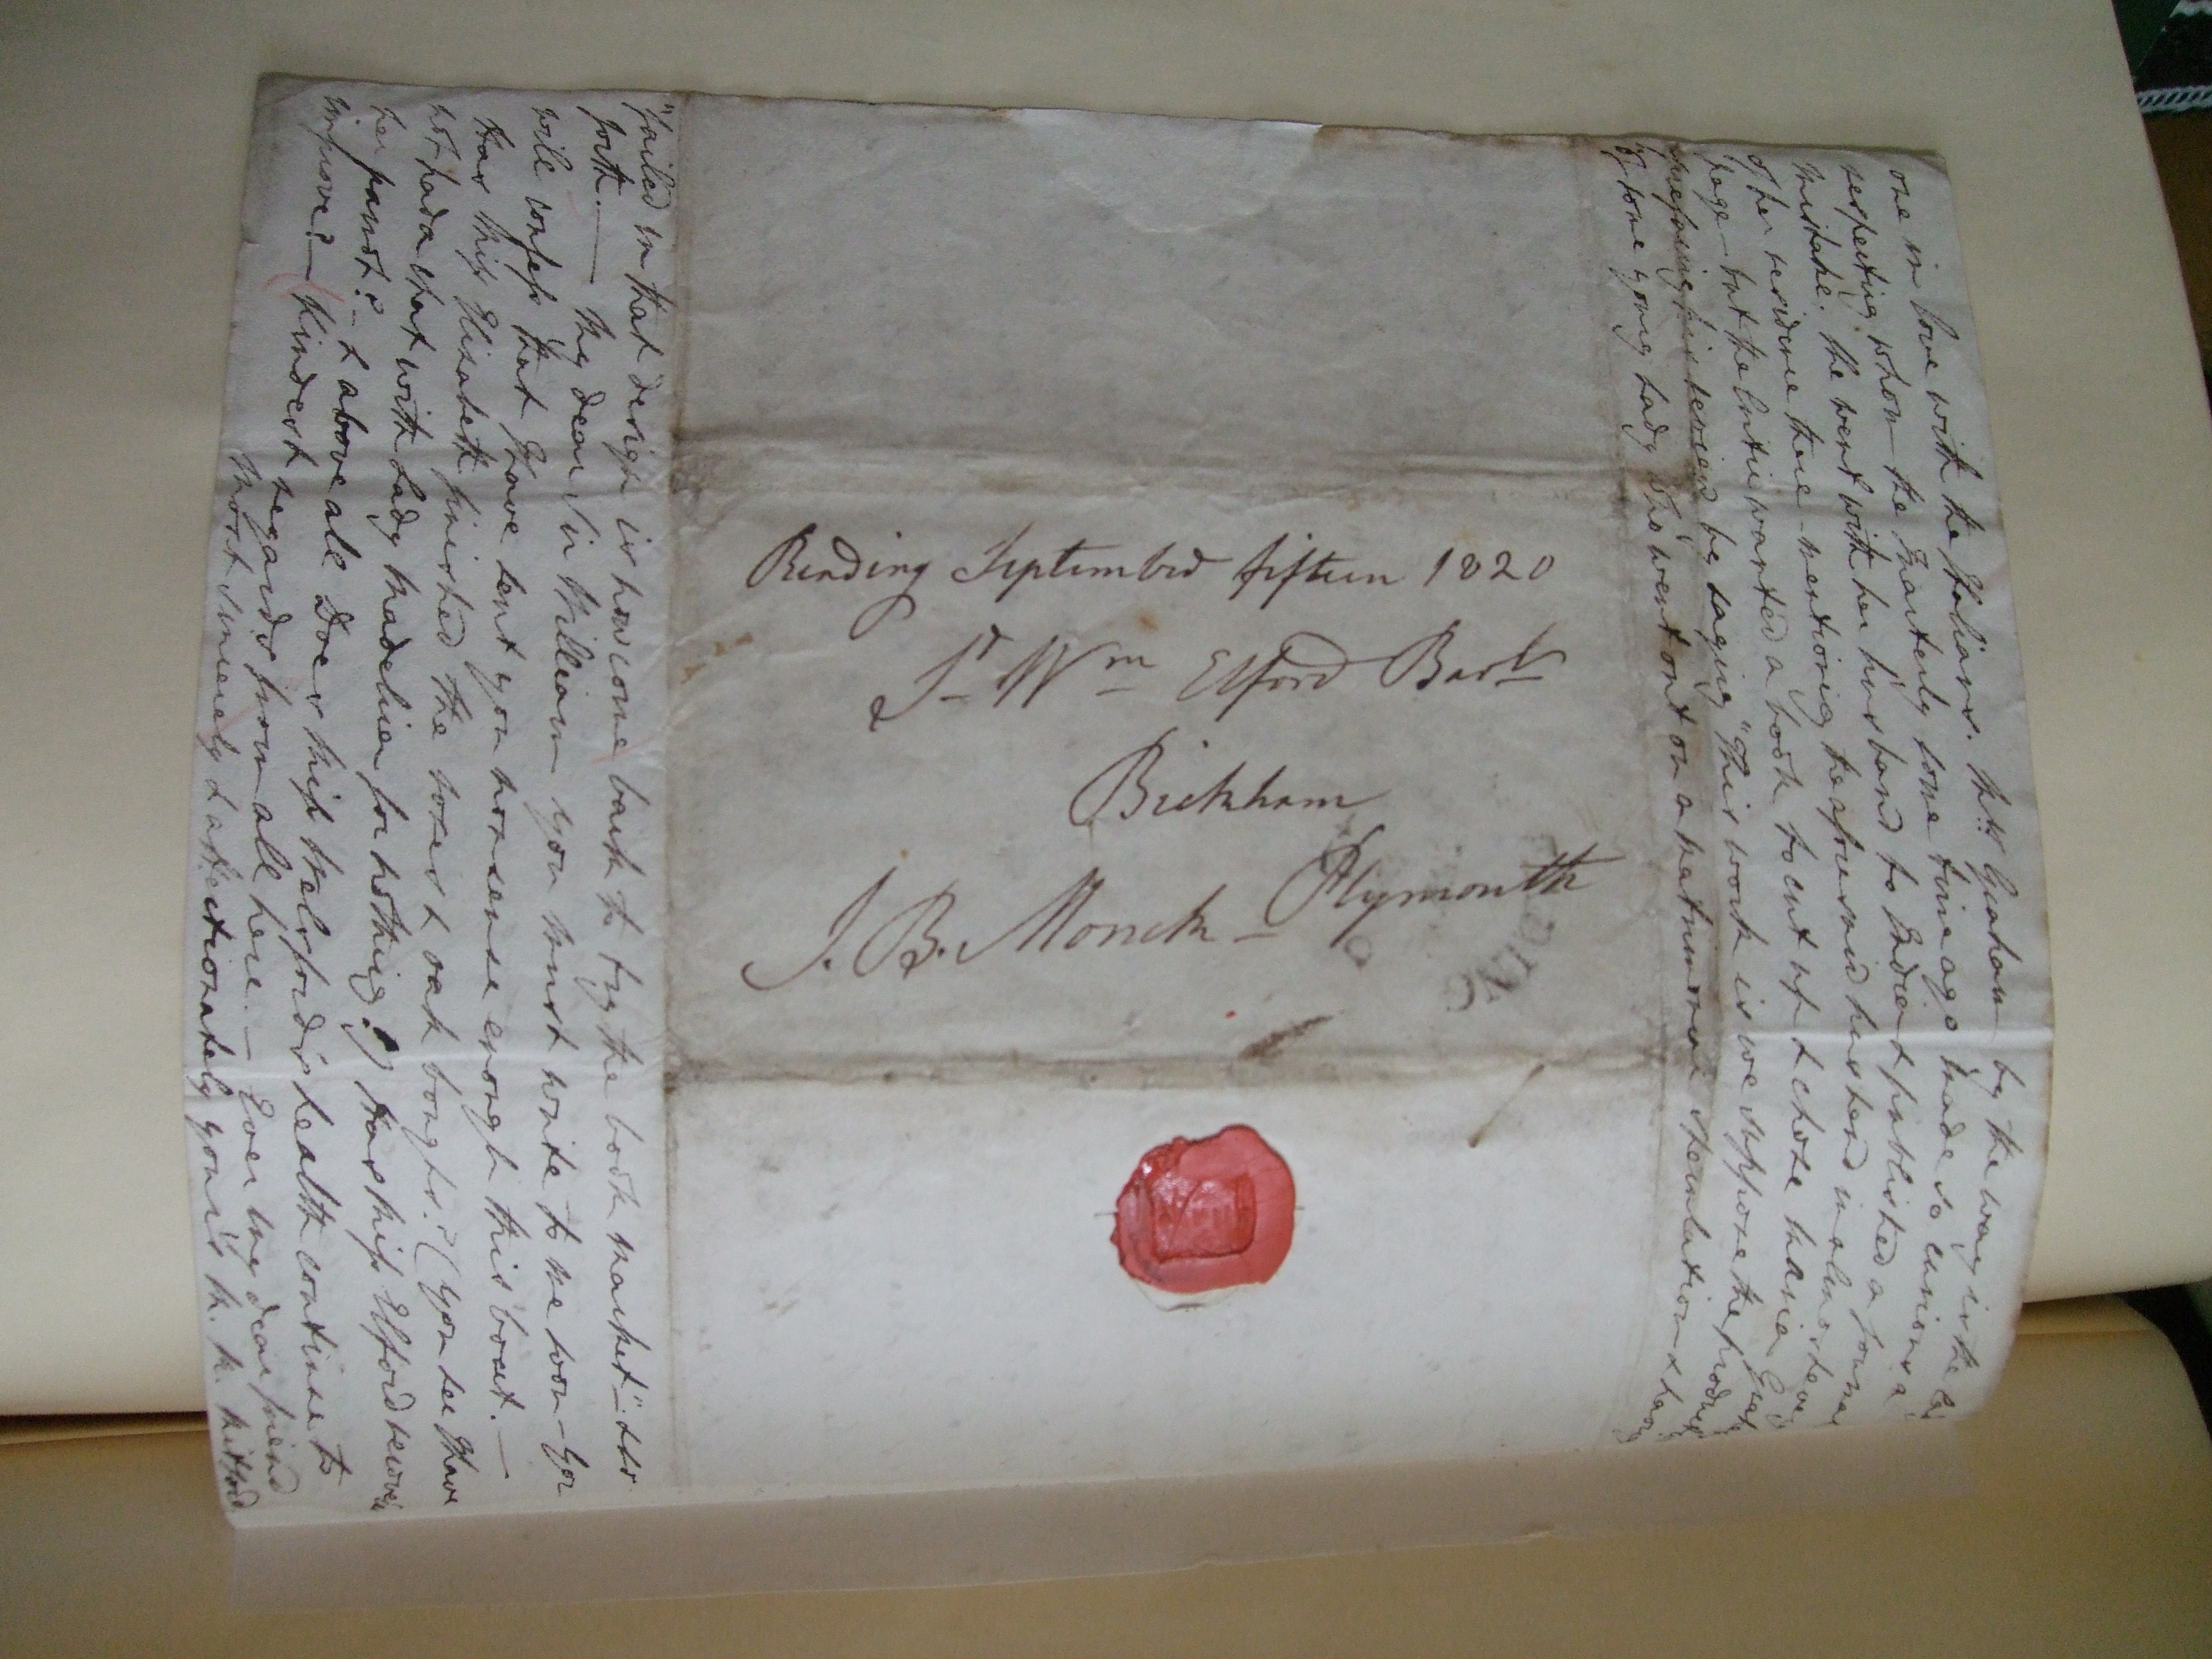 one in love with the Italians. Mrs. Graham by the way is the
respecting whom the Quarterly some time ago made so curious a
mistake. She went with her husband to India & published a Journal
of her residence there - mentioning the aforesaid husband in almost every
page - but the Critic wanted a book to cut up & chose
prefacing his review by saying "This work is we suppose the
of some young Lady who went out on a matrimonial speculation & having
Reading September fifteen 1820
Sr Wm Elford Bart
Bickham
Plymouth
J. B. Monck
"failed in that design is now come back to try the book market" - & so
forth. — My dear Sir William you must write to me soon - You
will confess that I have sent you nonsense enough this bout. —
Has Miss Elisabeth finished the roses & oak boughs? (You see I have
not had a chat with Lady Madelina for nothing.) Has Miss Elford
her parrot? - & above all Does Miss Welsford's health continue to
improve? — Kindest regards from all here. — Ever my dear friend
Most sincerely & affectionately yours M. R. Mitford